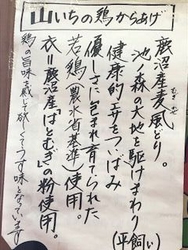 山いちの鶏からあげ
鹿沼産麦風どり。
池の森の大地を駆けまわり
(平飼い)
健康的なエサをついばみ
優しさに包まれ育てられた
若鶏(農水省基準)使用。
衣=鹿沼産「はとむぎ」の粉使用。
鶏の旨味を感じて欲しくてうす味となっています